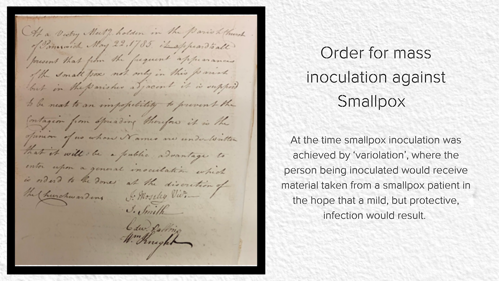 At a Vestry Meetg holden in the Parish Church
of Painswick May 22. 1785 it appeared to all
present that from the frequent appearances
of the small pox not only in this parish
but in the parishes adjacent it is supposed
to be next to an impossibility to prevent the
contagion from spreading therefore it is the
opinion of us whose Names are underwritten
that it will be a public advantage to
enter upon a general inoculation which
is order'd to be done at the discretion of
the Churchwardens
J. Moseley Vicar
J. Smith
Edwd
Wm Knight
Order for mass
inoculation against
Smallpox
At the time smallpox inoculation was
achieved by ‘variolation’, where the
person being inoculated would receive
material taken from a smallpox patient in
the hope that a mild, but protective,
infection would result.